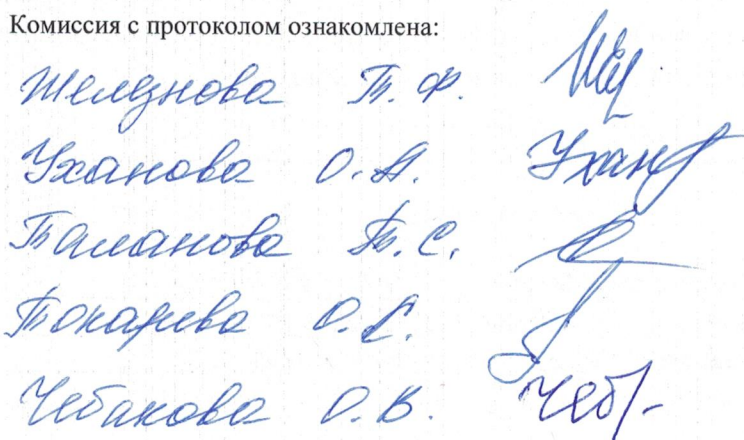 Комиссия с протоколом ознакомлена:
Т. Ф.
Уханова О. А. Ухан
Таланова Т. С.
Токарева О. С.
Чебакова О. В. Чеб